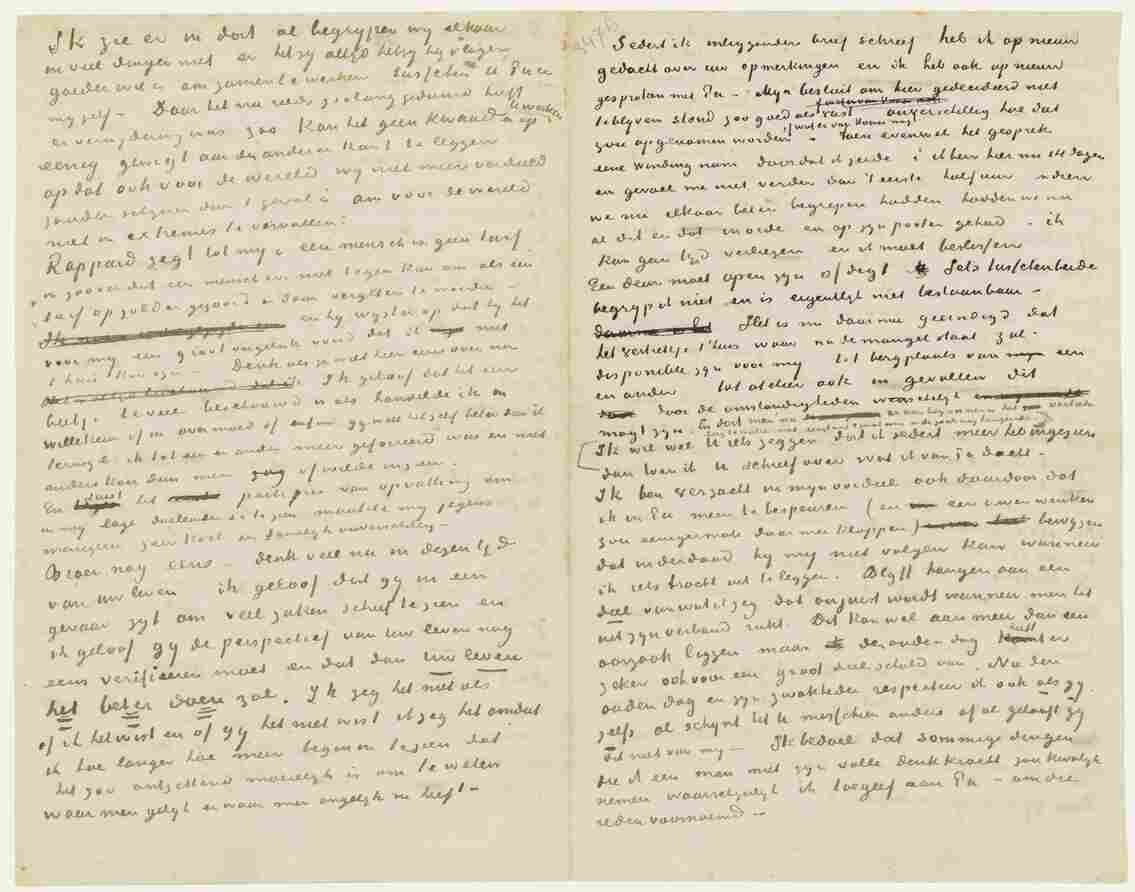 Ik zie er in dat al begrijpen wij elkaar
in veel dingen niet er hetzij altijd hetzij bij vlagen
goede wil is om zamen te werken tusschen U Pa en
mij zelf — Daar het nu reeds zoolang geduurd heeft
er verwijdering was zoo kan het geen kwaad
eenig gewigt aan de andere kant te leggen
opdat ook voor de wereld wij niet meer verdeeld
zouden schijnen dan 't geval is om voor de wereld
niet in extremes te vervallen.
Rappard zegt tot mij, een mensch is geen turf
in zooverre dat een mensch er niet tegen kan om als een
turf op zolder gegooid & daar vergeten te worden —
Ik en hij wijst er op dat hij het
voor mij een groot ongeluk vond dat ik niet
t'huis kon zijn — Denk als je wilt hier eens over na
Ik geloof dat het een
beetje te veel beschouwd is als handelde ik in
willekeur of in overmoed of enfin gij weet het zelf beter dan ik
terwijl ik tot een en ander meer geforceerd was en niet
anders kon dan men zag of wilde inzien.
En juist het partijdige van opvatting om
in mij lage doeleinden &c te zien maakte mij jegens
menigeen zeer koel en tamelijk onverschillig —
Broer nog eens — denk veel na in dezen tijd
van uw leven ik geloof dat gij in een
gevaar zijt om veel zaken scheef te zien en
ik geloof gij de perspectief van uw leven nog
eens verifieeren moet en dat dan uw leven
het beter doen zal. Ik zeg het niet als
of ik het wist en of gij het niet wist ik zeg het omdat
ik hoe langer hoe meer begin in te zien dat
het zoo ontzettend moeielijk is om te weten
waar men gelijk en waar men ongelijk in heeft —
Sedert ik inliggenden brief schreef heb ik op nieuw
gedacht over uw opmerkingen en ik heb ook op nieuw
gesproken met Pa — Mijn besluit om hier gedecideerd niet
te blijven stond zoo goed als vast onverschillig hoe dat
zou opgenomen worden of wat er van komen mogt — toen evenwel het gesprek
eene wending nam doordat ik zeide, ik ben hier nu 14 dagen
en gevoel me niet verder dan 't eerste halfuur, indien
we nu elkaar beter begrepen hadden hadden we nu
al dit en dat in orde en op zijn pooten gehad — ik
kan geen tijd verliezen en ik moet beslissen
Een deur moet open zijn of digt. Iets tusschenbeide
begrijp ik niet en is eigentlijk niet bestaanbaar —
Het is nu daarmee geeindigd dat
het vertrekje t'huis waar nu de mangel staat zal
disponible zijn voor mij tot bergplaats van een
en ander tot atelier ook in gevallen dit
door de omstandigheden wenselijk
mogt zijn. En dat men nu er aan begonnen is het vertrek
Ik wil wel U iets zeggen dat ik sedert meer heb ingezien
dan toen ik U schreef over wat ik van Pa dacht.
Ik ben verzacht in mijn oordeel ook daardoor dat
ik in Pa meen te bespeuren (en een uwer wenken
zou eenigermate daarmee kloppen) bewijzen
dat inderdaad hij mij niet volgen kan wanneer
ik iets tracht uit te leggen. Blijft hangen aan een
deel van wat ik zeg dat onjuist wordt wanneer men het
uit zijn verband rukt. Dit kan wel aan meer dan een
oorzaak liggen maar de ouden dag heeft er
zeker ook voor een groot deel schuld van. Nu den
ouden dag en zijn zwakheden respecteer ik ook als gij,
zelfs al schijnt het U misschien anders of al gelooft gij
dit niet van mij — Ik bedoel dat sommige dingen
die ik een man met zijn volle denkkracht zou kwalijk
nemen waarschijnlijk ik toegeef aan Pa — om die
reden voornoemd —